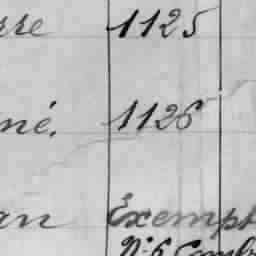 rre 1125
né. 1126
an Exempt
N° 6 Comb